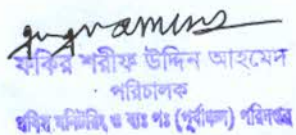 ফকির শরীফ উদ্দিন আহমেদ
পরিচালক
মনিটরিং ও ব্যঃ পঃ (পূর্বাঞ্চল) পরিদপ্তর